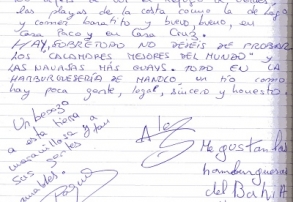 las playas de la costa como la de
y comer baratito y bueno, bueno, en
Casa Paco y en Casa Cruz.
HAY, SOBRETODO NO DEJEIS DE PROBAR
LOS "CALAMARES MEJORES DEL MUNDO" y
LAS NAVAJAS MÁS GUAYS. TODO EN LA
HAMBURGUESERÍA DE MANOLO, un tío como
hay poca gente, legal, sincero y honesto.
Un besazo
a esta tierra
maravillosa y
sus gentes
amables.
Me gustan las
hamburguesas
del BAHIA